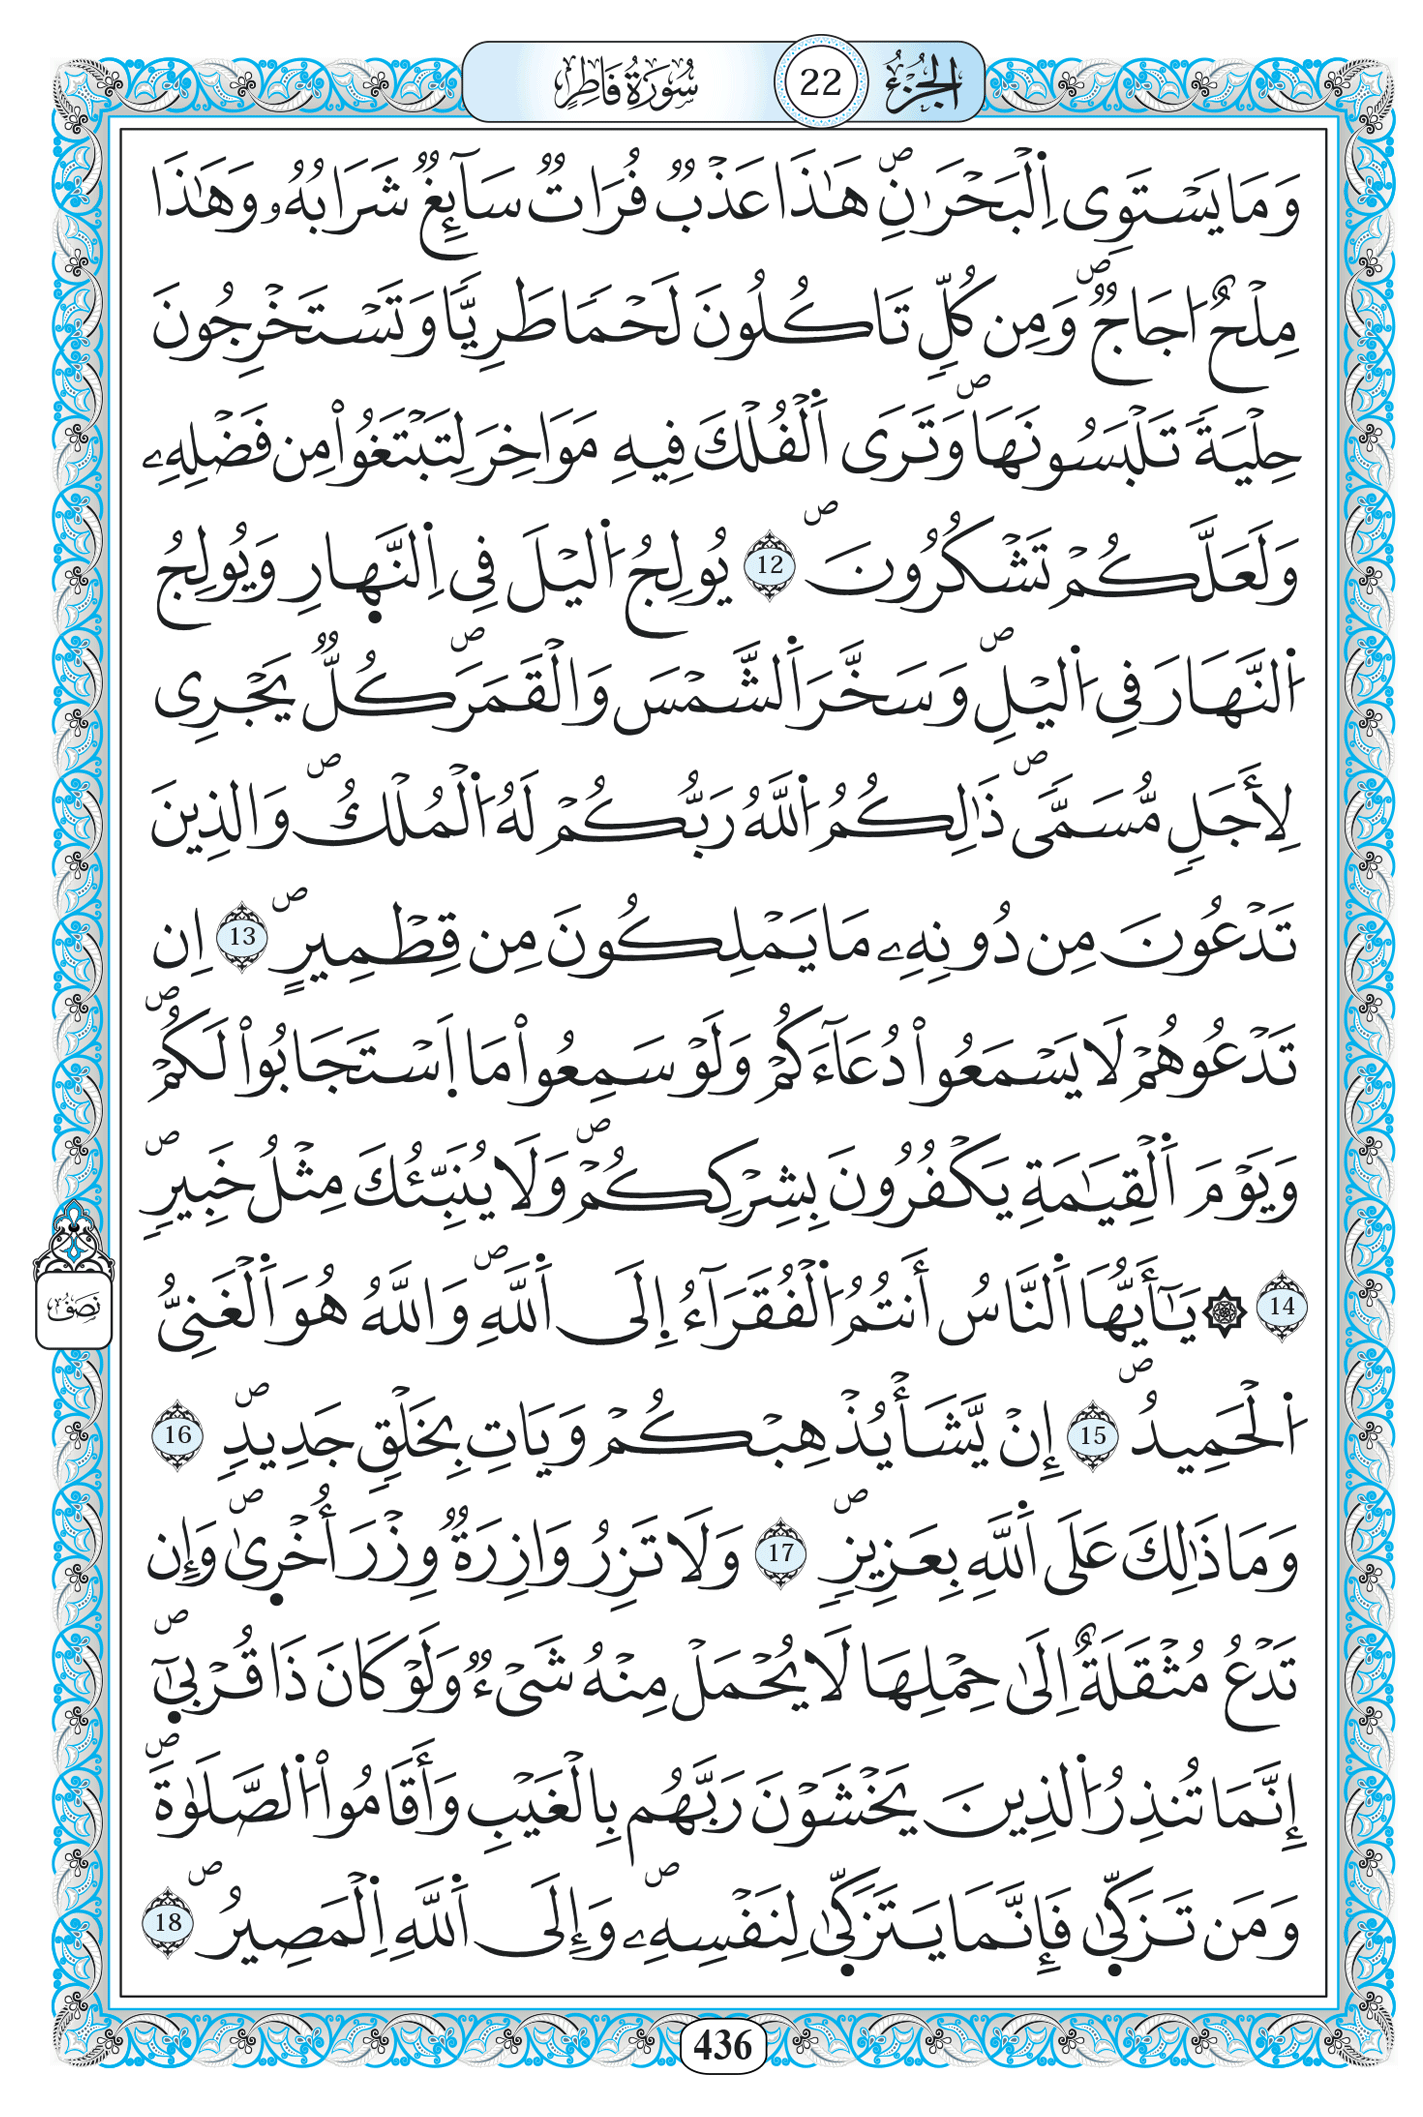 الجُزْءُ 22 سُورَةُ فَاطِرٍ
وَمَا يَسْتَوِى اِ۬لْبَحْرَٰنِۖ هَٰذَا عَذْبٞ فُرَاتٞ سَآئِغٞ شَرَابُهُۥ وَهَٰذَا
مِلْحٌ ا۟جَاجٞۖ وَمِن كُلّٖ تَاكُلُونَ لَحْماٗ طَرِيّاٗ وَتَسْتَخْرِجُونَ
حِلْيَةٗ تَلْبَسُونَهَاۖ وَتَرَى اَ۬لْفُلْكَ فِيهِ مَوَاخِرَ لِتَبْتَغُواْ مِن فَضْلِهِۦ
وَلَعَلَّكُمْ تَشْكُرُونَۖ 12 يُولِجُ اُ۬ليْلَ فِى اِ۬لنَّه۪ارِ وَيُولِجُ
اُ۬لنَّهَارَ فِى اِ۬ليْلِۖ وَسَخَّرَ اَ۬لشَّمْسَ وَالْقَمَرَۖ كُلّٞ يَجْرِى
لِأَجَلٖ مُّسَمّىٗۖ ذَٰلِكُمُ اُ۬للَّهُ رَبُّكُمْ لَهُ اُ۬لْمُلْكُۖ وَالذِينَ
تَدْعُونَ مِن دُونِهِۦ مَا يَمْلِكُونَ مِن قِطْمِيرٍۖ 13 اِن
تَدْعُوهُمْ لَا يَسْمَعُواْ دُعَآءَكُمْ وَلَوْ سَمِعُواْ مَا اَ۪سْتَجَابُواْ لَكُمْۖ
وَيَوْمَ اَ۬لْقِيَٰمَةِ يَكْفُرُونَ بِشِرْكِكُمْۖ وَلَا يُنَبِّئُكَ مِثْلُ خَبِيرٖۖ
14 ۞ يَٰٓأَيُّهَا اَ۬لنَّاسُ أَنتُمُ اُ۬لْفُقَرَآءُ اِ۪لَى اَ۬للَّهِۖ وَاللَّهُ هُوَ اَ۬لْغَنِىُّ
اُ۬لْحَمِيدُۖ 15 إِنْ يَّشَأْ يُذْهِبْكُمْ وَيَاتِ بِخَلْقٖ جَدِيدٖۖ 16
وَمَا ذَٰلِكَ عَلَى اَ۬للَّهِ بِعَزِيزٖۖ 17 وَلَا تَزِرُ وَازِرَةٞ وِزْرَ أُخْر۪ىٰۖ وَإِن
تَدْعُ مُثْقَلَةٌ اِلَىٰ حِمْلِهَا لَا يُحْمَلْ مِنْهُ شَىْءٞ وَلَوْ كَانَ ذَا قُرْب۪ىٰٓۖ
إِنَّمَا تُنذِرُ اُ۬لذِينَ يَخْشَوْنَ رَبَّهُم بِالْغَيْبِ وَأَقَامُواْ اُ۬لصَّلَوٰةَۖ
وَمَن تَزَكّ۪ىٰ فَإِنَّمَا يَتَزَكّ۪ىٰ لِنَفْسِهِۦۖ وَإِلَى اَ۬للَّهِ اِ۬لْمَصِيرُۖ 18
نصف
436